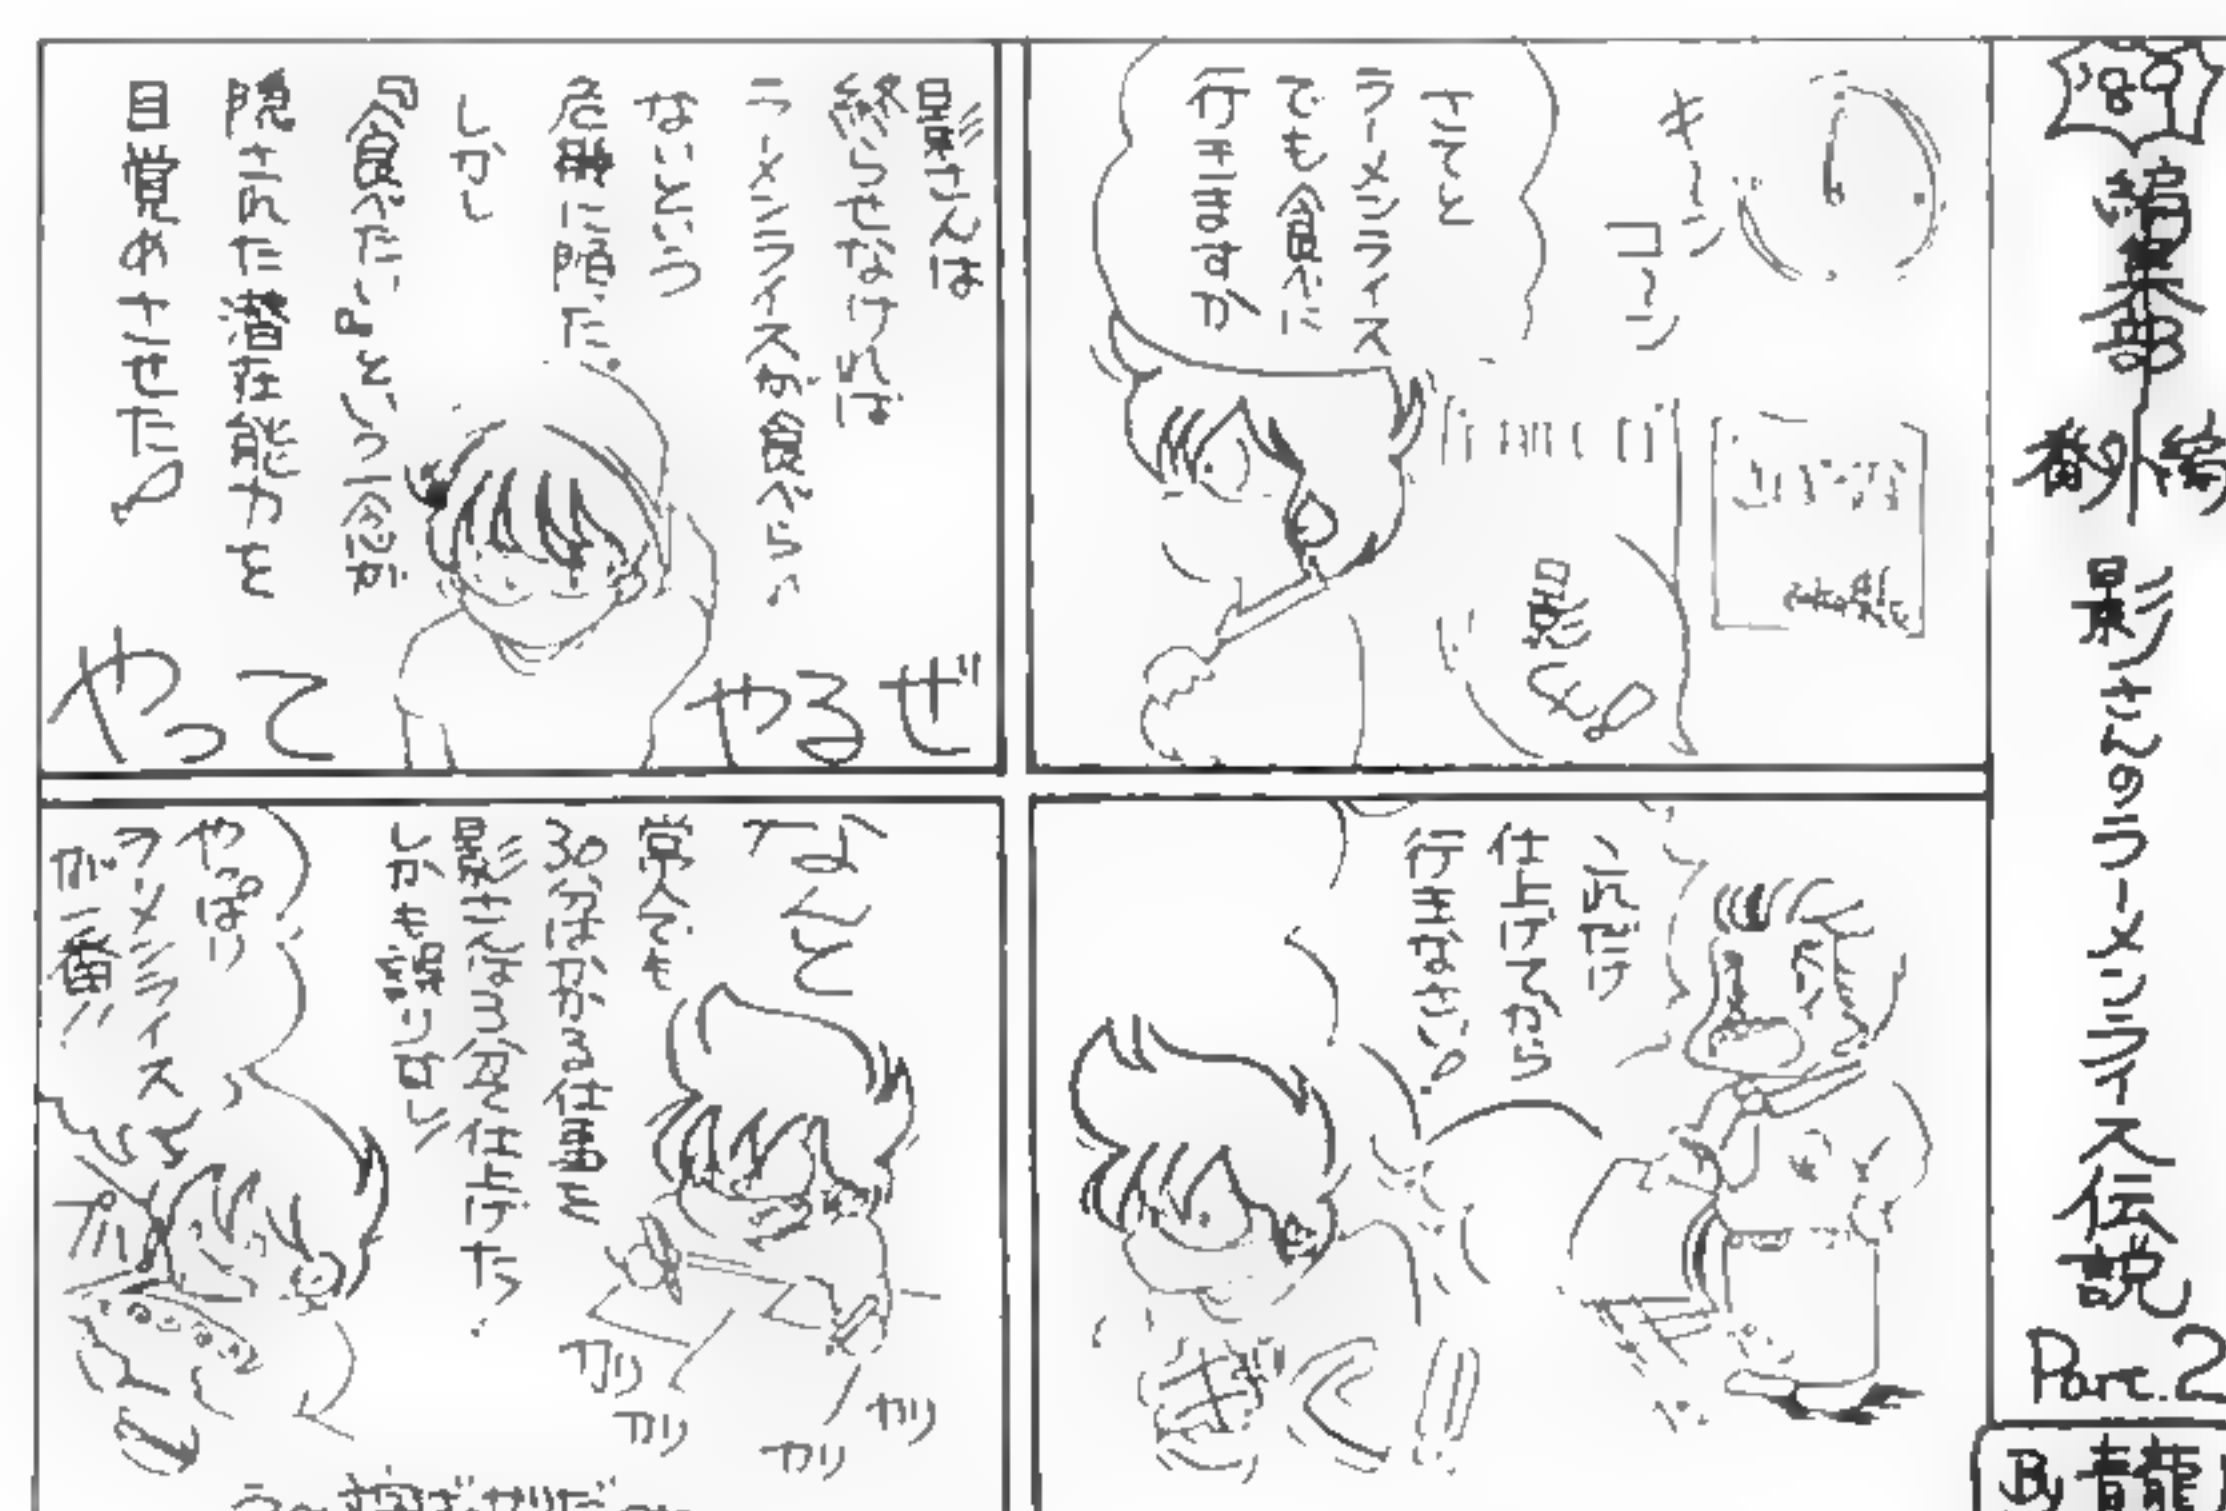 '89
編集部
番外編
影さんのラーメンライス伝説
Part.2
By 青龍
キーン
コーン
さてと
ラーメンライス
でも食べに
行きますか
影くん!
これだけ
仕上げてから
行きなさい。
影さんは
終らせなければ
ラーメンライスが食べられ
ないという
危機に陥った
しかし
『食べたい』という食欲が
隠された潜在能力を
目覚めさせた。
やって
やるぜ
なんと
常人でも
30分はかかる仕事を
影さんは3分で仕上げた!
カリ
カリ
カリ
カリ
やっぱり
ラーメンライス
が一番!!